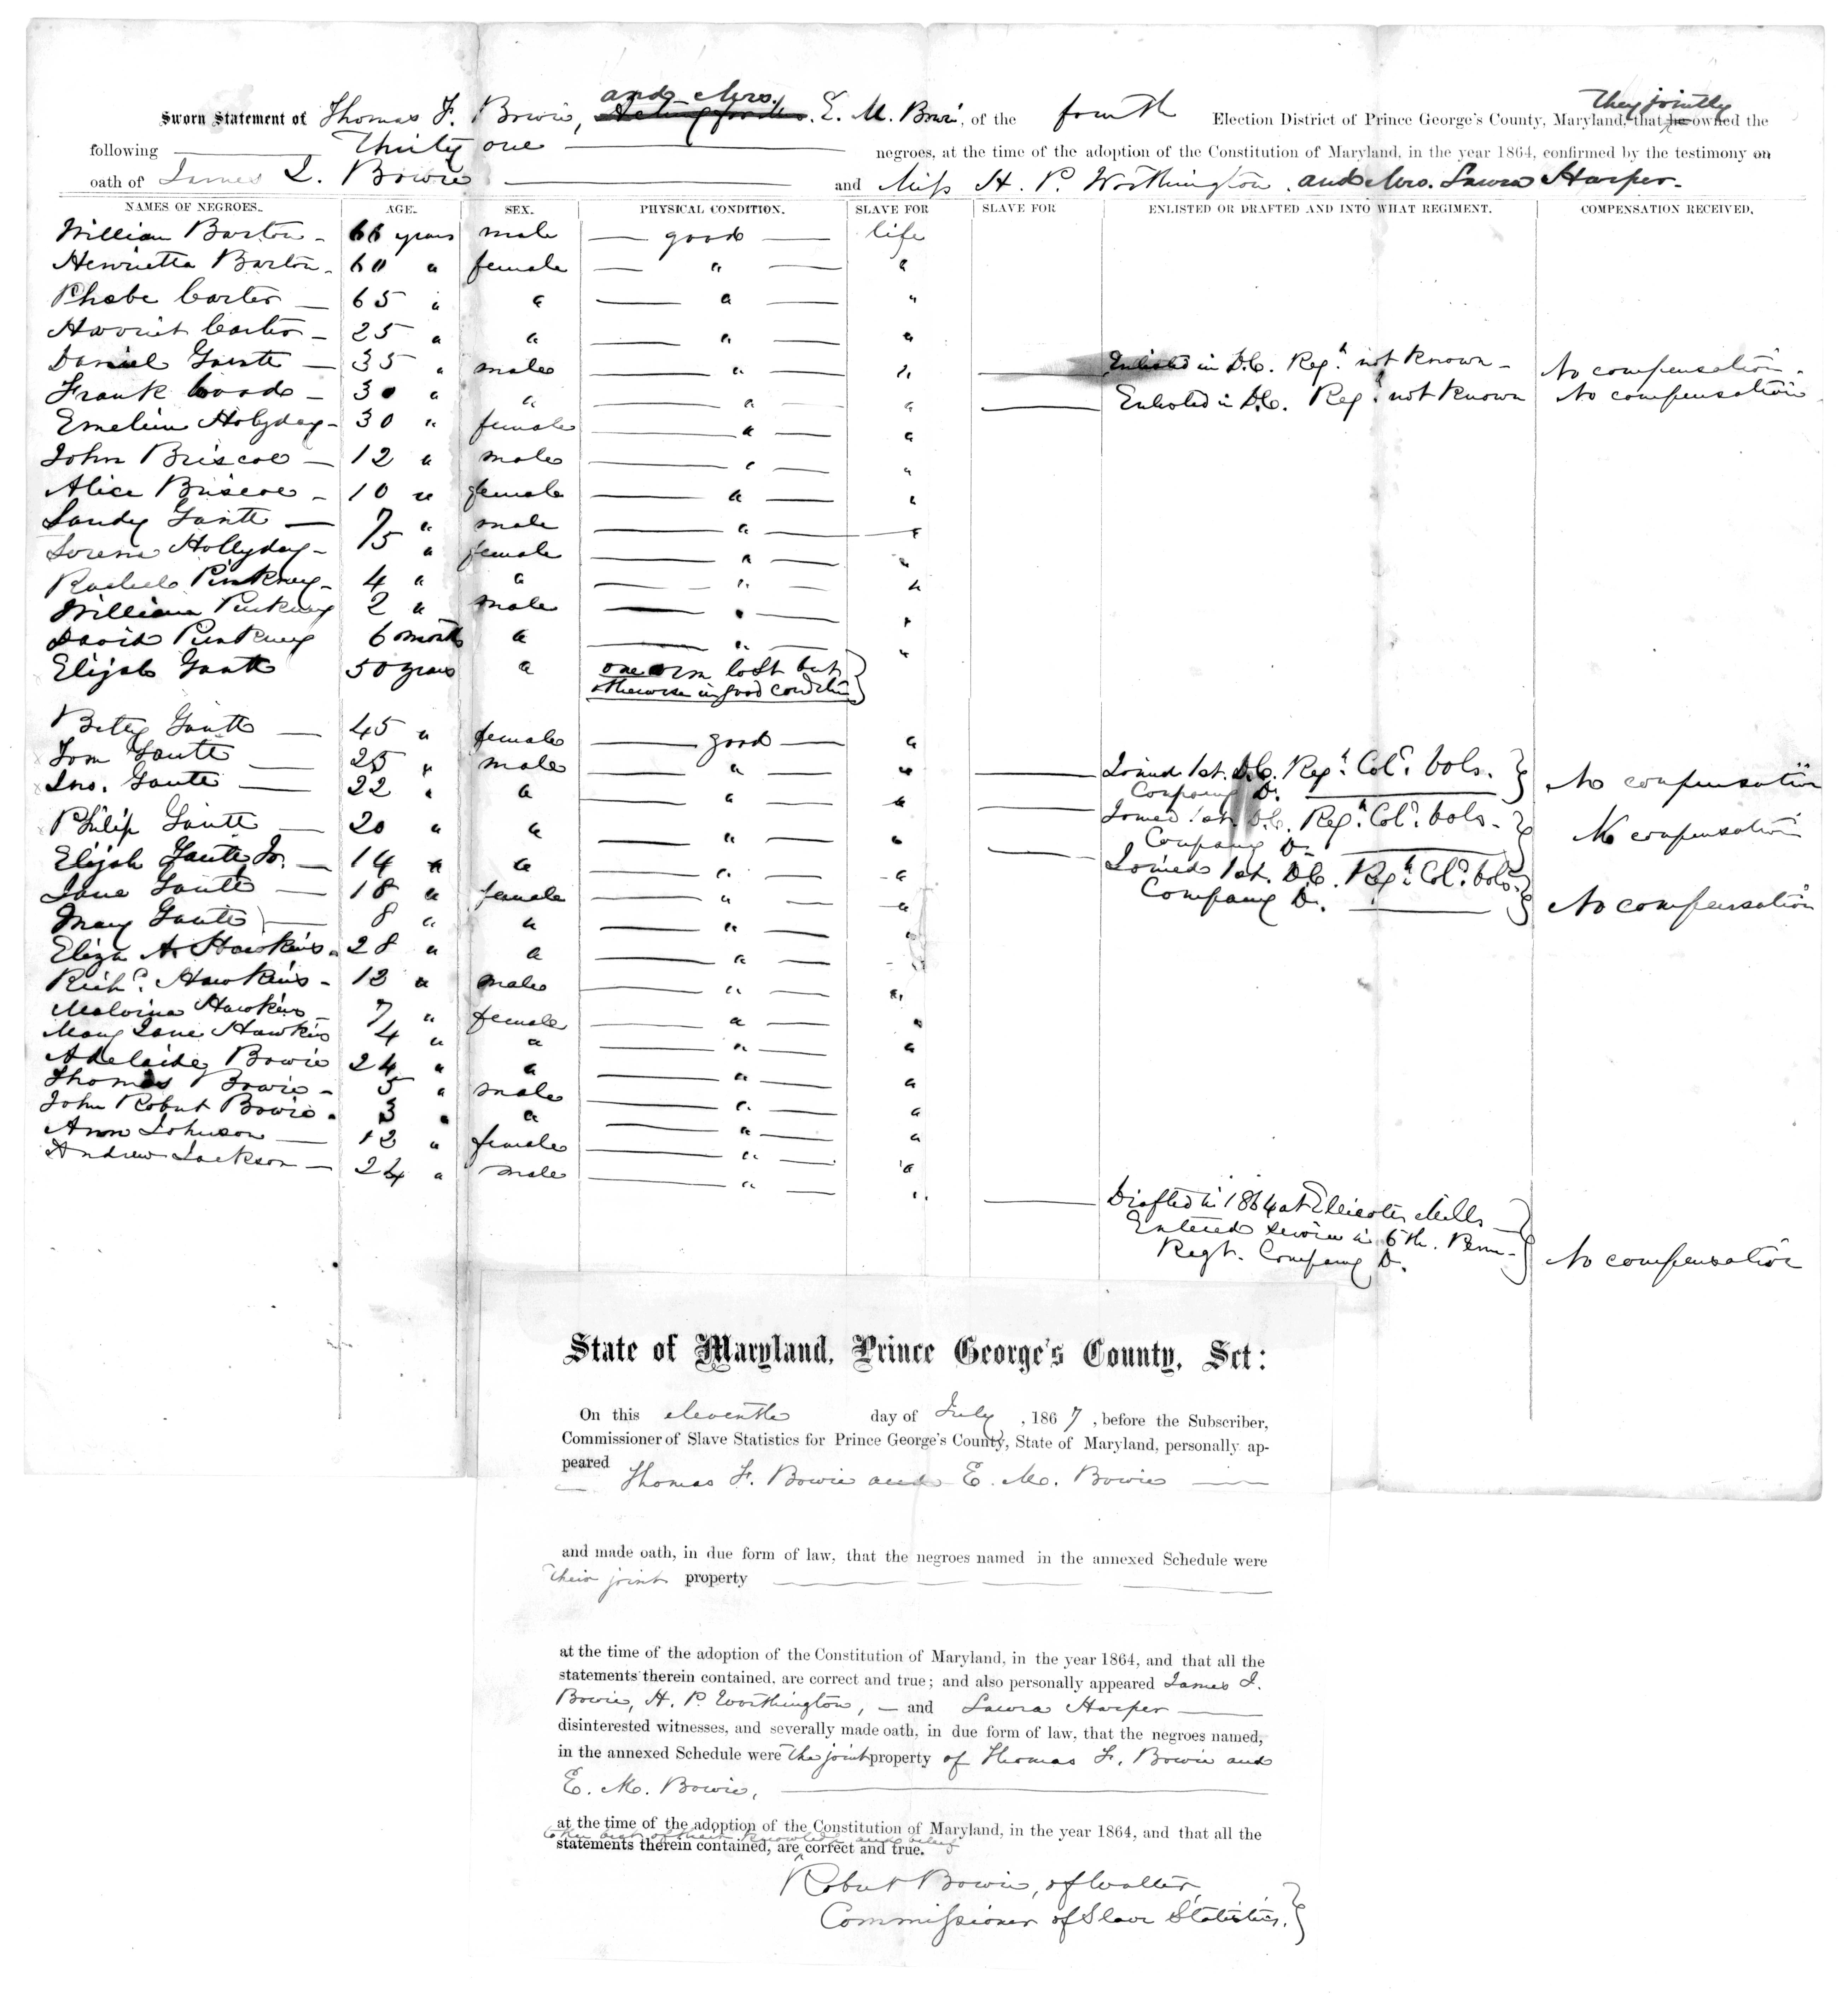 and Mrs. They jointly
Sworn Statement of Thomas F. Bowie, E. M. Bowie, of the fourth Election District of Prince George's County, Maryland, that he owned the
following Thirty one negroes, at the time of the adoption of the Constitution of Maryland, in the year 1864, confirmed by the testimony on
oath of James I. Bowie and Miss H. P. Worthington and Mrs. Laura Harper.
NAMES OF NEGROES. AGE. SEX. PHYSICAL CONDITION. SLAVE FOR SLAVE FOR ENLISTED OR DRAFTED AND INTO WHAT REGIMENT. COMPENSATION RECEIVED.
William Barton 66 years male good life
Henrietta Barton 60 " female " "
Phebe Carter 65 " " " "
Harriet Carter 25 " " " "
Daniel Gantt 35 " male " " Enlisted in D.C. Regt. not known No compensation
Frank Coode 30 " " " " Enlisted in D.C. Regt. not known No compensation
Emeline Holyday 30 " female " "
John Briscoe 12 " male " "
Alice Briscoe 10 " female " "
Sandy Gantt 7 " male " "
Hollyday 5 " female " "
Rachel Pinkney 4 " " " "
William Pinkney 2 " male " "
David Pinkney 6 months " " "
Elijah Gantt 50 years " one arm lost but
otherwise in good condition
Betsy Gantt 45 " female good "
Tom Gantt 25 " male " " Joined 1st. D.C. Regt. Cold. Vols. No compensation
Company D.
Jno. Gantt 22 " " " " Joined 1st. D.C. Regt. Cold. Vols. No compensation
Company D.
Philip Gantt 20 " " " " Joined 1st. D.C. Regt. Cold. Vols. No compensation
Company D.
Elijah Gantt Jr. 14 " " " "
Jane Gantt 18 " female " "
Mary Gantt 8 " " " "
Eliza A. Hawkins 28 " " " "
Richd. Hawkins 13 " male " "
Malvina Hawkins 7 " female " "
Mary Jane Hawkins 4 " " " "
Adelaide Bowie 24 " " " "
Thomas Bowie 5 " male " "
John Robert Bowie 3 " " " "
Ann Johnson 12 " female " "
Andrew Jackson 24 " male " " Drafted in 1864 at Ellicotts Mills
Entered service in 6th. Penn.
Regt. Company D. No compensation
State of Maryland, Prince George's County, Sct:
On this eleventh day of July, 1867, before the Subscriber,
Commissioner of Slave Statistics for Prince George's County, State of Maryland, personally ap-
peared Thomas F. Bowie and E. M. Bowie
and made oath, in due form of law, that the negroes named in the annexed Schedule were
their joint property
at the time of the adoption of the Constitution of Maryland, in the year 1864, and that all the
statements therein contained, are correct and true; and also personally appeared James I.
Bowie, H. P. Worthington, and Laura Harper
disinterested witnesses, and severally made oath, in due form of law, that the negroes named,
in the annexed Schedule were the joint property of Thomas F. Bowie and
E. M. Bowie,
at the time of the adoption of the Constitution of Maryland, in the year 1864, and that all the
to the best of their knowledge and belief
statements therein contained, are correct and true.
Robert Bowie, of Walter,
Commissioner of Slave Statistics.